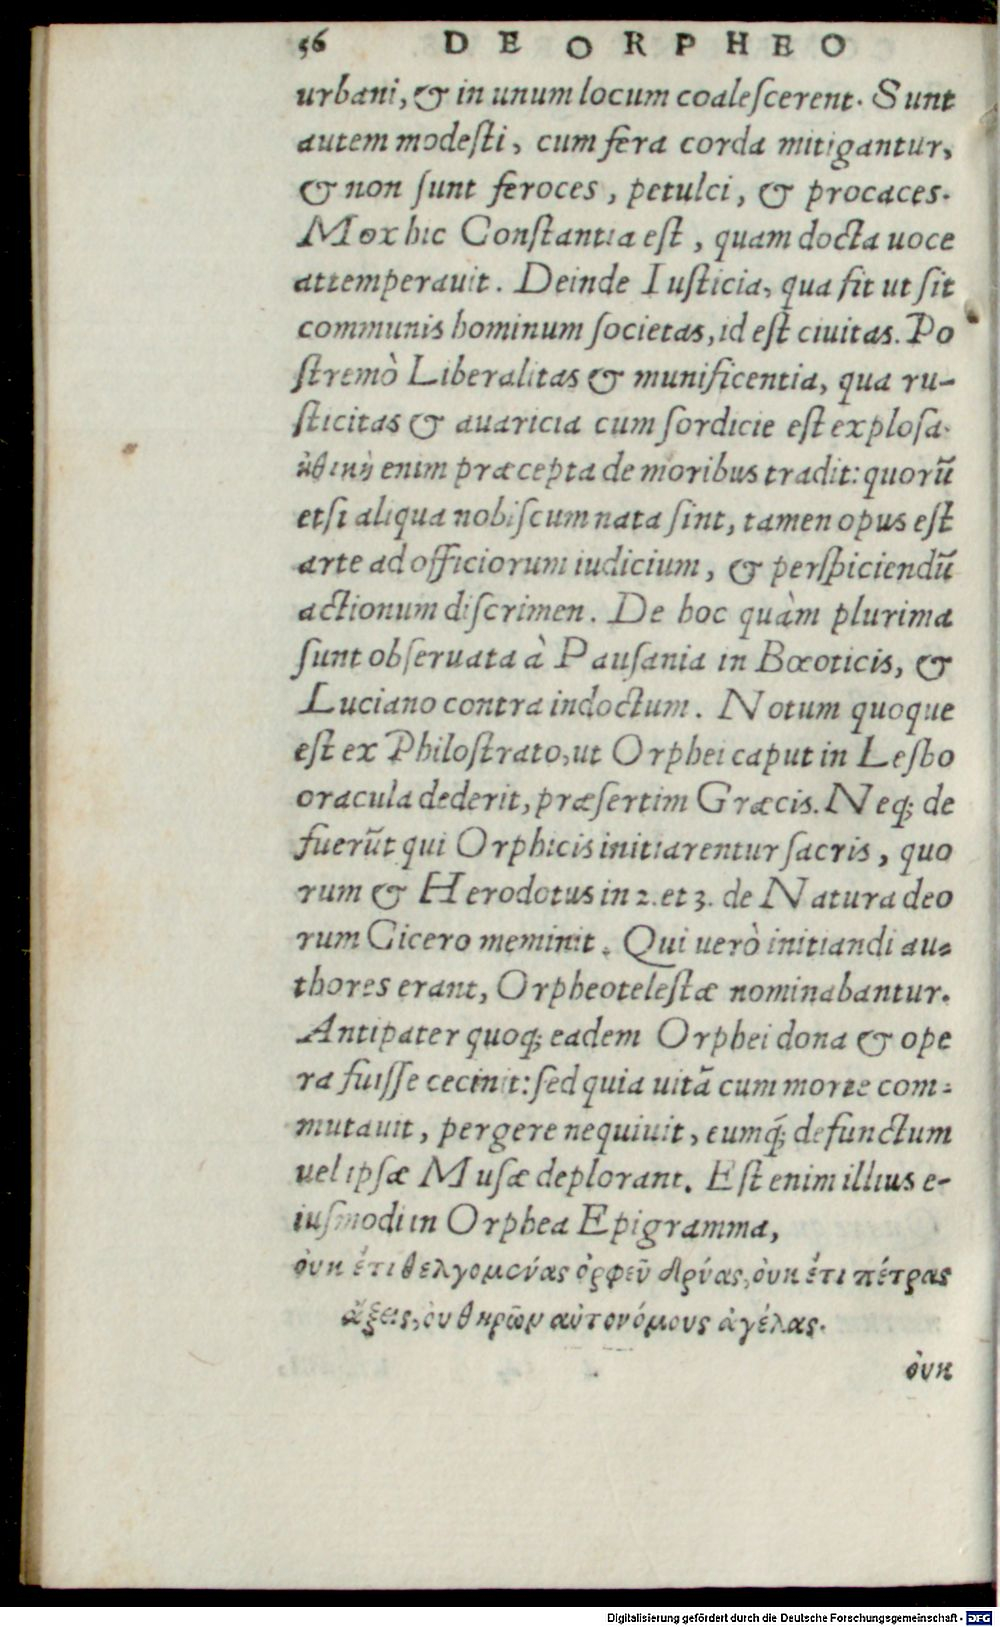 56 DE ORPHEO
urbani, & in unum locum coaleſcerent. Sunt
autem modeſti, cum fera corda mitigantur,
& non ſunt feroces, petulci, & procaces.
Mox hic Conſtantia eſt, quam docta uoce
attemperauit. Deinde Iuſticia, qua fit ut ſit
communis hominum ſocietas, id eſt ciuitas. Po
ſtremò Liberalitas & munificentia, qua ru-
ſticitas & auaricia cum ſordicie eſt exploſa.
ἠθικὴ enim præcepta de moribus tradit: quorũ
etſi aliqua nobiſcum nata ſint, tamen opus eſt
arte ad officiorum iudicium, & perſpiciendũ
actionum diſcrimen. De hoc quàm plurima
ſunt obſeruata à Pauſania in Bœoticis, &
Luciano contra indoctum. Notum quoque
eſt ex Philoſtrato, ut Orphei caput in Lesbo
oracula dederit, præſertim Græcis. Neq; de
fuerũt qui Orphicis initiarentur ſacris, quo
rum & Herodotus in 2. et 3. de Natura deo
rum Cicero meminit. Qui uerò initiandi au-
thores erant, Orpheoteleſtæ nominabantur.
Antipater quoq; eadem Orphei dona & ope
ra fuiſſe cecinit: ſed quia uitã cum morte com-
mutauit, pergere nequiuit, eumq́; defunctum
uel ipſæ Muſæ deplorant. Eſt enim illius e-
iuſmodi in Orphea Epigramma,
ὀυκ ἔτι θελγομένας ὀρφεῦ δρύας, ὀυκ ἔτι πέτρας
ἄξεις, ὀυ θηρῶν αὐτονόμους ἀγέλας.
ὀυκ
Digitalisierung gefördert durch die Deutsche Forschungsgemeinschaft - DFG